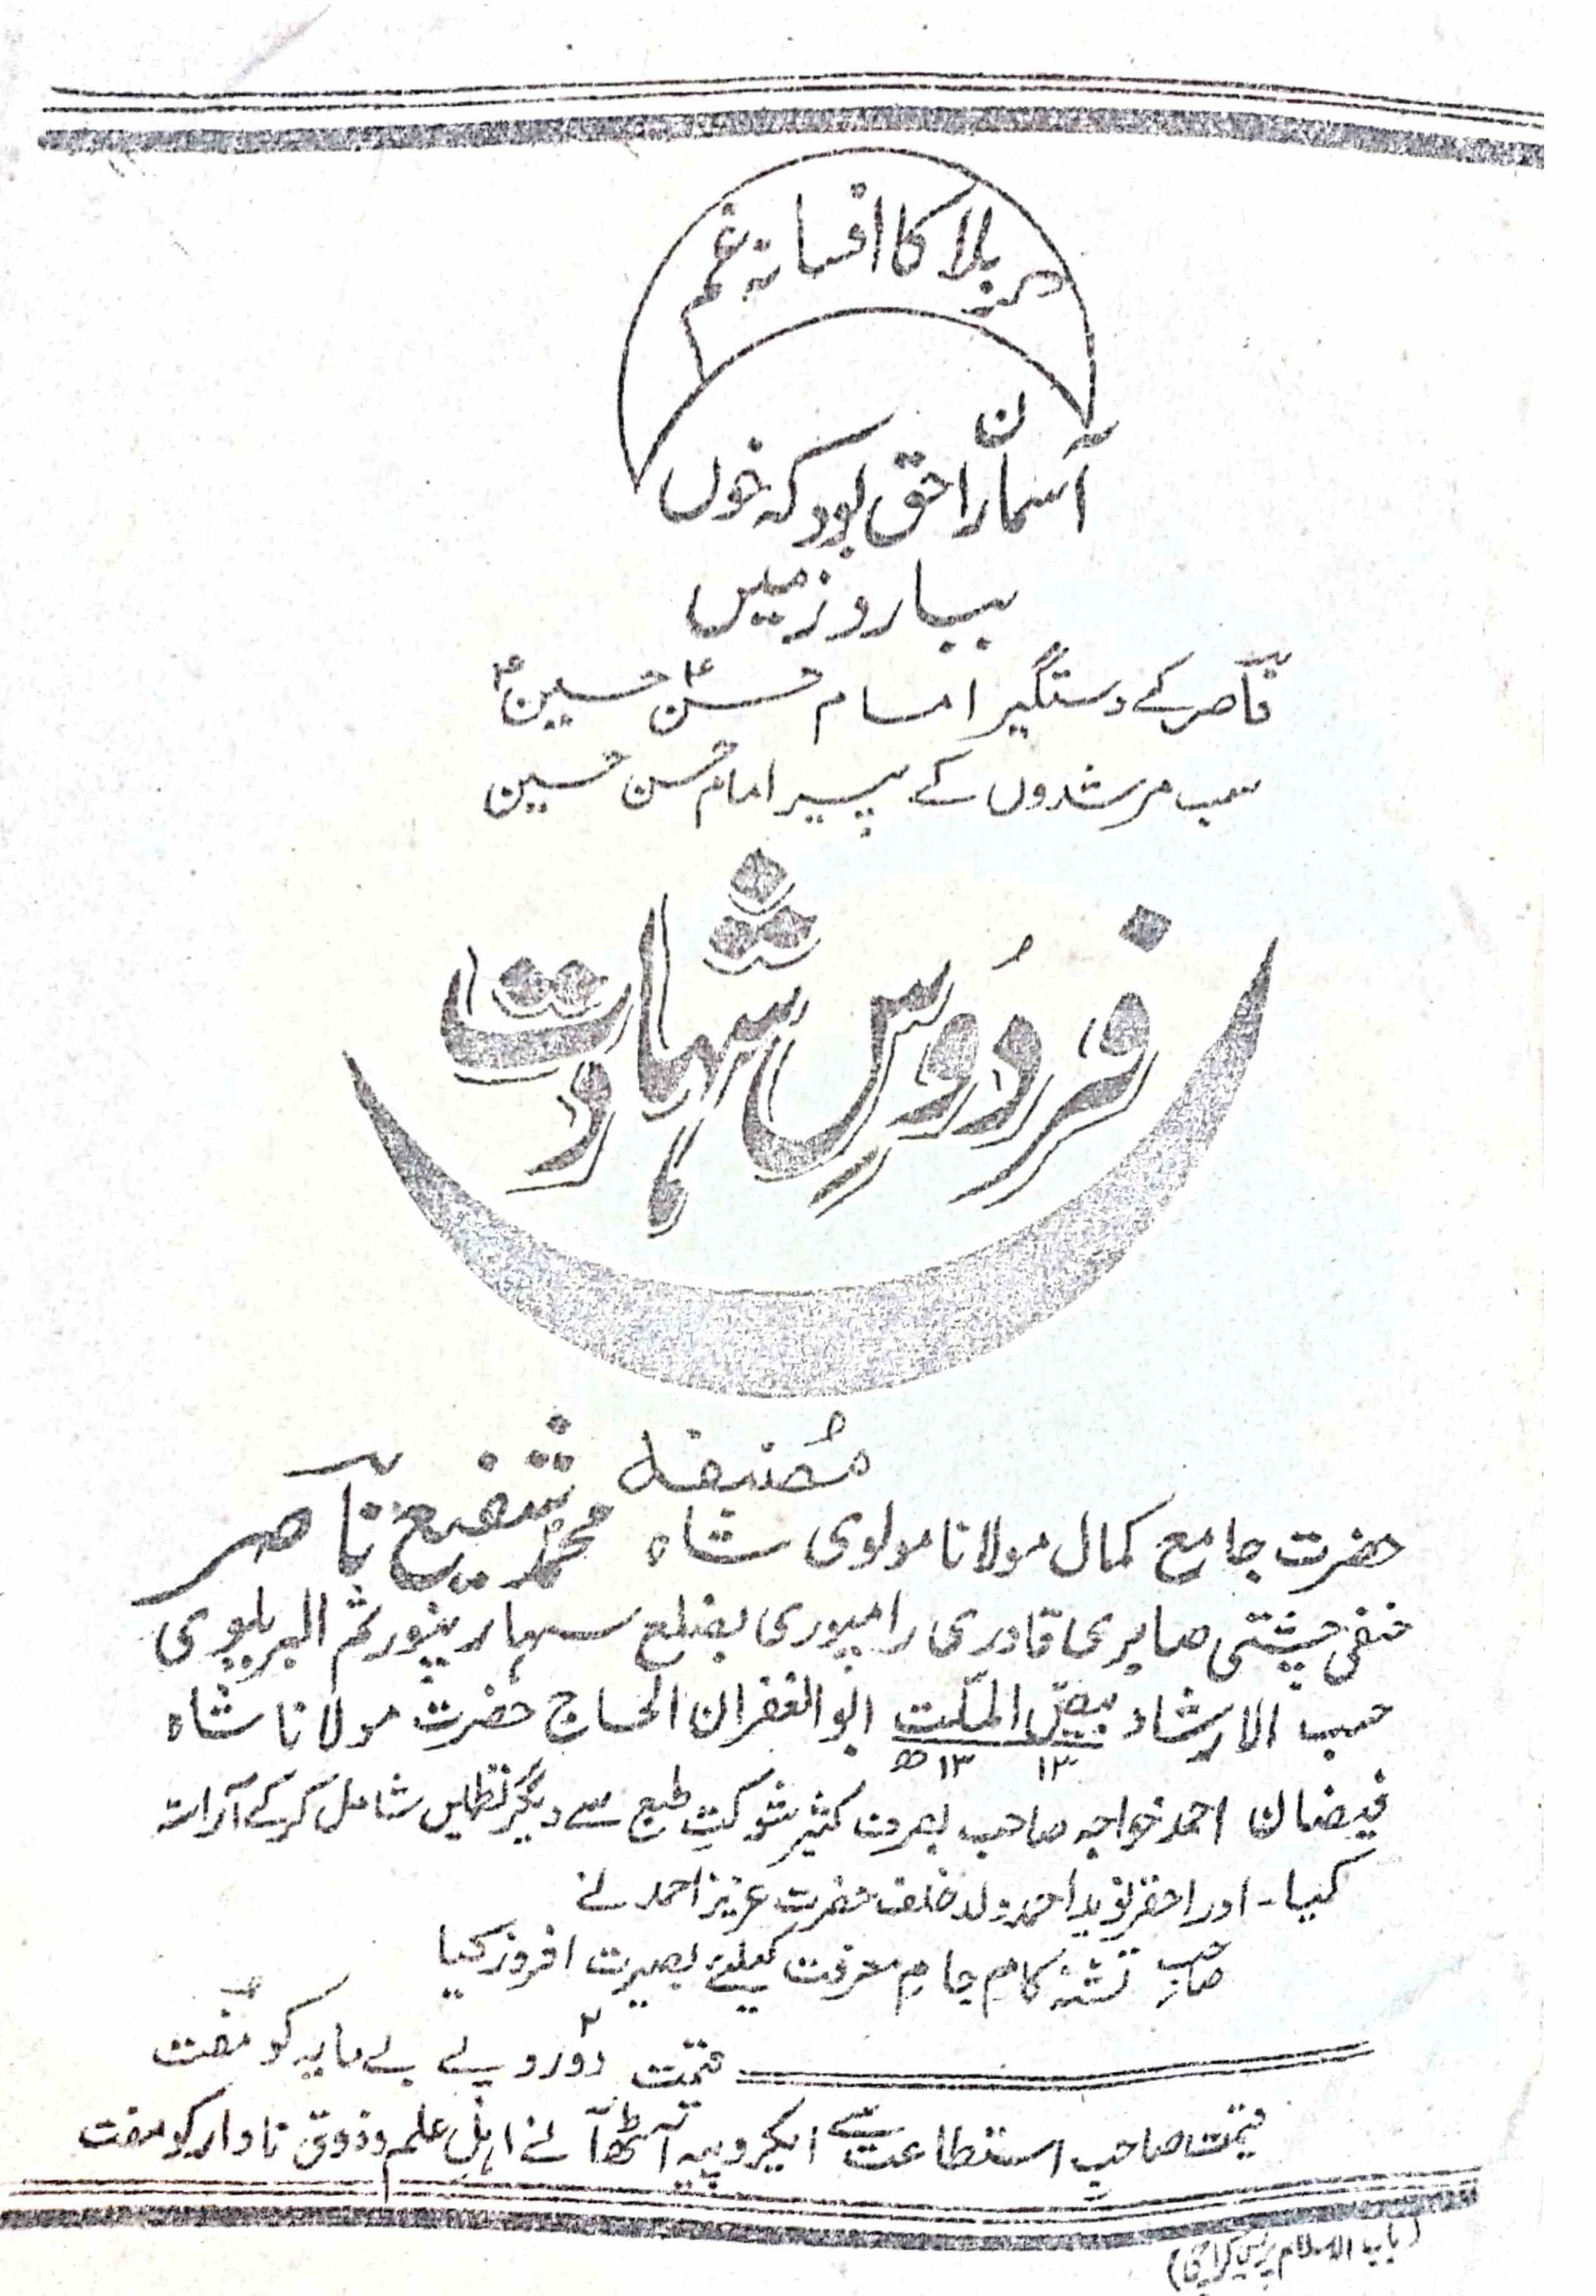 کربلا کا افسانہ غم
آسماں را حق بود کہ خوں
ببارو زمیں
قاصر کے دستگیر امام حسنؑ حسینؑ
سب مرشدوں کے پیر امام حسن حسین
فردُوسِ شہادت
مُصنیفہ
حضرت جامع کمال مولانا مولوی شاہ محمد شفیع قاصر
حنفی چشتی صابری قادری رامپوری بضلع سہارنپور ثم البریلوی
حسب الارشاد الملّت ابو الغفران الحاج حضرت مولانا شاہ
۱۳ ۱۳ھ
فیضان احمد خواجہ صاحب بصرف کثیر شوکتِ طبع سے دیگر نظمیں شامل کر کے آراستہ
کیا۔ اور احقر نوید احمد ولد خلف حضرت عزیز احمد نے
صاحبِ تشنۂ کام جامِ معرفت کیلئے بصیرت افروز کیا
قیمت دو۲ روپے بے مایہ کو مفت
قیمت صاحبِ استطاعت سے ایکروپیہ آٹھ آنے اہلِ علم و ذوق نادار کو مفت
(باب الاسلام پریس کراچی)